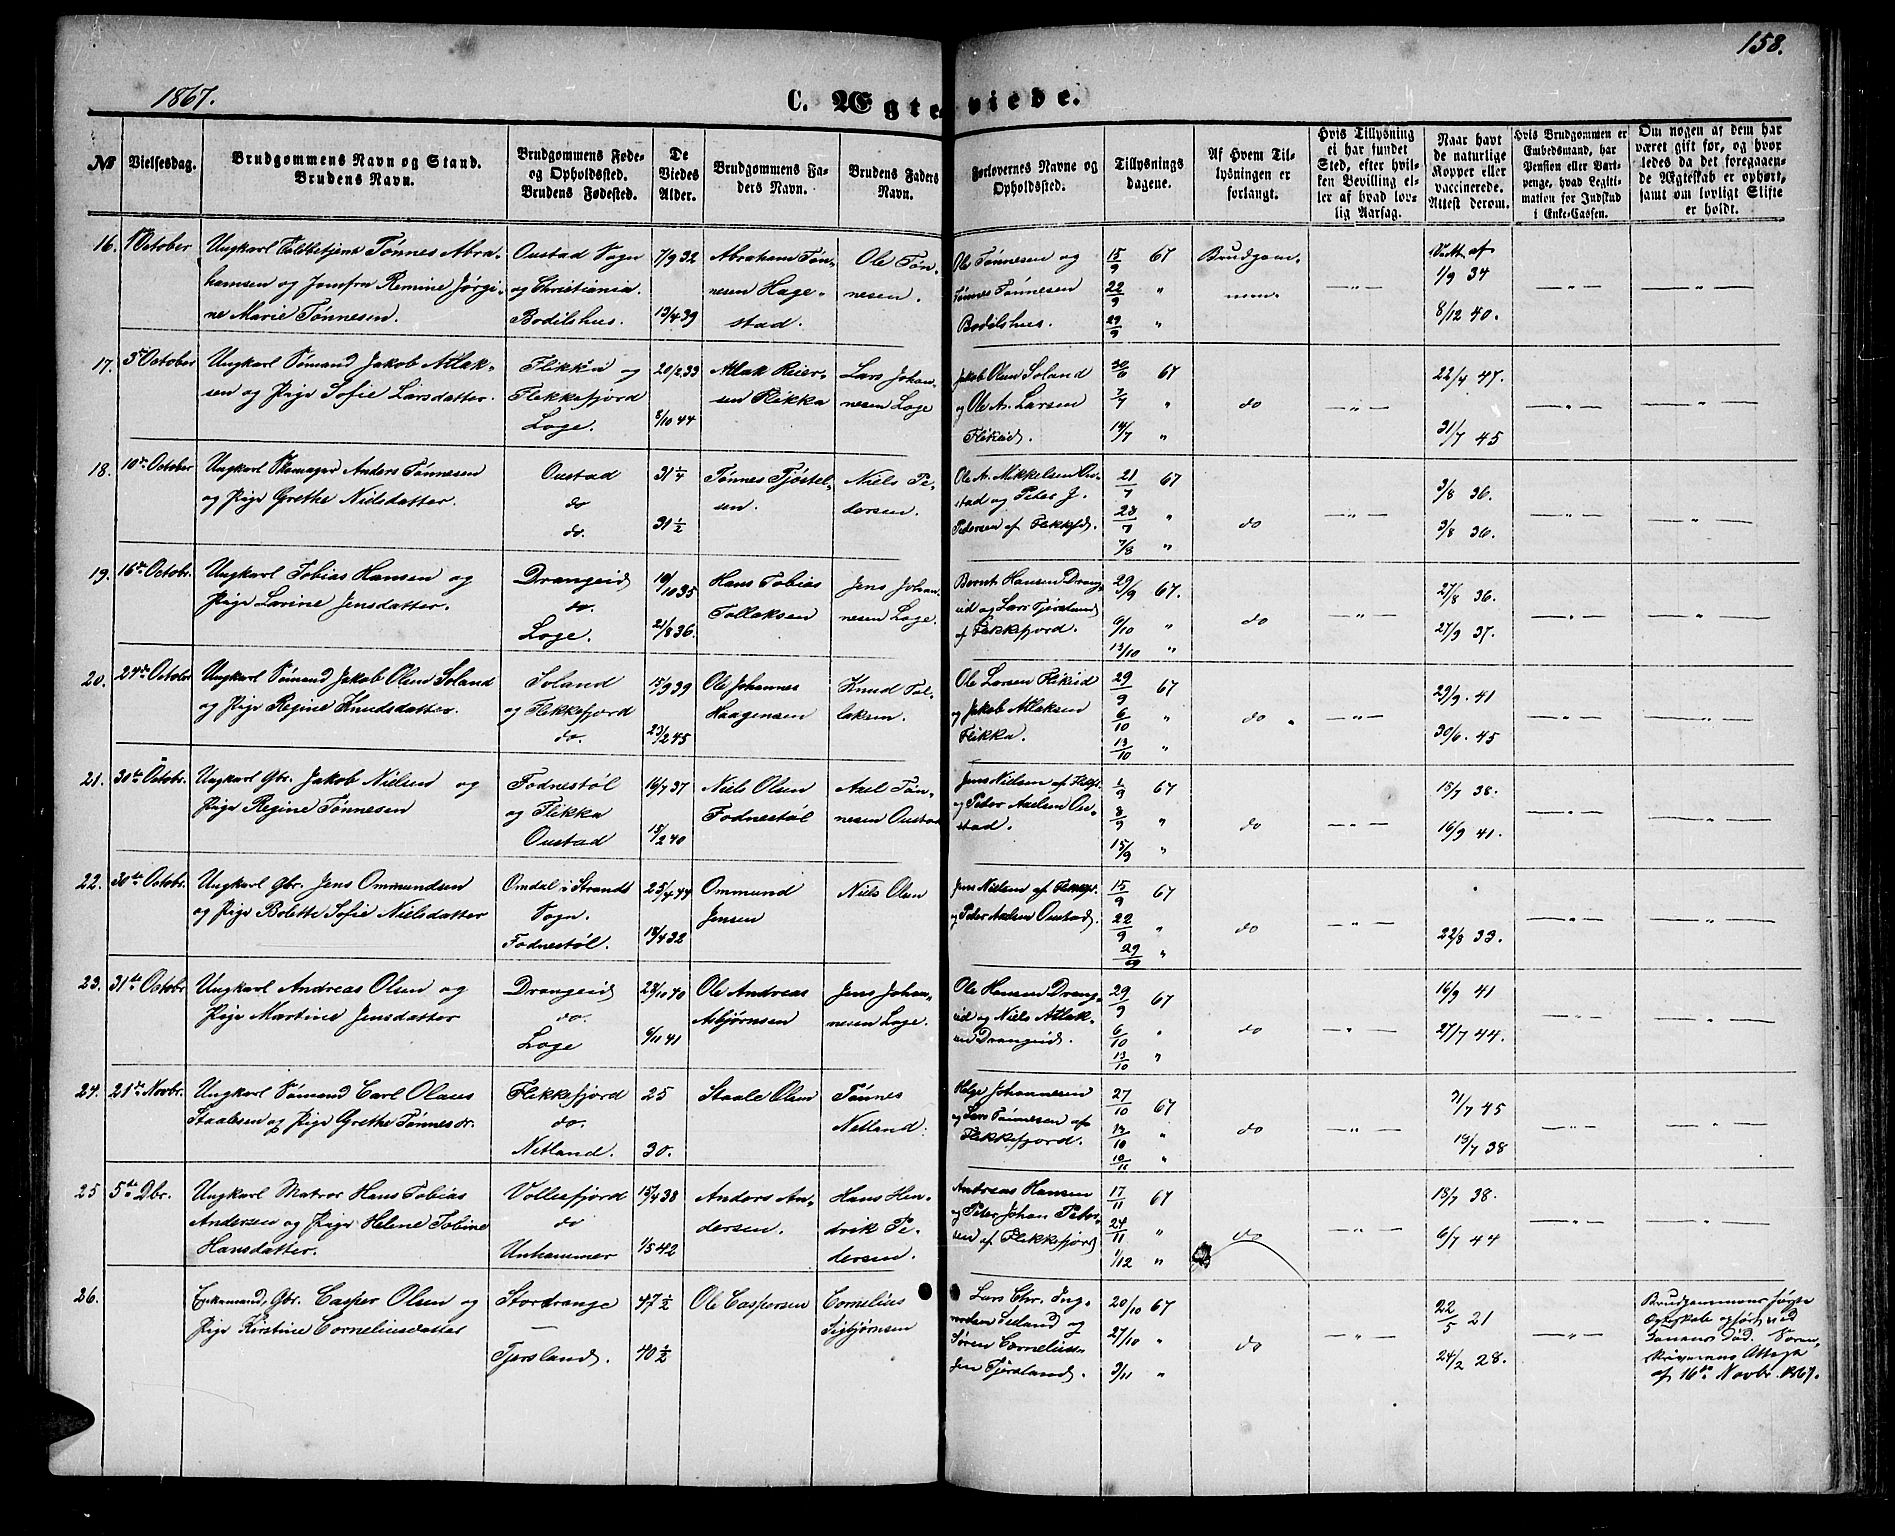 158.
1867.
C. Ægteviede.
№
Vielsesdag.
Brudgommens Navn og Stand.
Brudens Navn.
Brudgommens Føde-
og Opholdssted.
Brudens Fødested.
De
Viedes
Alder.
Brudgommens Fa-
ders Navn.
Brudens Faders
Navn.
Forlovernes Navne og
Opholdssted.
Tillysnings
dagene.
Af Hvem Til-
lysningen er
forlangt.
Hvis Tillysning
ei har fundet
Sted, efter hvil-
ken Bevilling el-
ler af hvad lov-
lig Aarsag.
Naar havt
de naturlige
Kopper eller
vaccinerede.
Attest derom.
Hvis Brudgommen er
Embedsmand, har
Pension eller Vart-
penge, hvad Legiti-
mation for Indskud
i Enke-Cassen.
Om nogen af dem har
været gift før, og hvor
ledes da det foregaaen-
de Ægteskab er ophørt,
samt om lovligt Skifte
er holdt.
16. October
Ungkarl Toldbetjent Tønnes Abra-
hamsen og Jomfru Remine Jørgi-
ne Marie Tønnesen.
Oustad Sogn
og Christiania.
Bodilshus.
7/9 32
13/4 39
Abraham Tøn-
nesen Hage-
stad.
Ole Tøn-
nesen.
Ole Tønnesen og
Tønnes Tønnesen
Bodilshus.
15/9 67
22/9 "
29/9 "
Brudgom-
men.
1/9 34
8/12 40.
17. 3 October
Ungkarl Sømand Jakob Atlak-
sen og Pige Sofie Larsdatter.
Flikka og
Flekkefjord
Loge.
20/2 33
8/10 44
Atlak Reier-
sen Flikka
Lars Johan-
nesen Loge
Jakob Olsen Soland
og Ole A. Larsen
Flikeid.
30/6 67
7/7 "
14/7 "
do
22/4 47.
31/7 45
18. 10de October
Ungkarl Skomager Anders Tønnesen
og Pige Grethe Nielsdatter.
Oustad
do
do.
31 1/4
31 1/2
Tønnes Tjøstel-
sen.
Niels Pe-
dersen.
Ole A. Mikkelsen Ou-
stad og Peter J.
Pedersen af Flekkefd.
21/7 67
28/7 "
7/8 "
do
3/8 36.
3/8 36.
19. 16de Octobr.
Ungkarl Tobias Hansen og
Pige Lavine Jensdatter.
Drangeid
do.
Loge.
10/10 35
21/8 36.
Hans Tobias
Tollaksen
Jens Johan-
nesen Loge.
Bernt Hansen Drang-
eid og Lars Tjørsland
af Flekkefjord.
29/9 67.
6/10 "
13/10 "
do
27/8 36.
27/9 37.
20. 24de October
Ungkarl Sømand Jakob Olsen Soland
og Pige Regine Knudsdatter.
Soland
og Flekkefjord
do.
15/9 39
23/2 45
Ole Johannes
Haagensen
Knud Tol-
laksen.
Ole Larsen Flikeid
og Jakob Atlaksen
Flikka.
29/9 67
6/10 "
13/10 "
do
29/9. 41
30/6. 45
21. 30te Octobr.
Ungkarl Gbr. Jakob Nielsen og
Pige Regine Tønnesen
Fodnestøl
og Flikka
Oustad
16/7 37
15/2 40
Niels Olsen
Fodnestøl
Axel Tøn-
nesen Oustad
Jens Nielsen af Flkfj.
og Peter Axelsen Ou-
stad.
1/9 67
8/9 "
15/9 "
do
15/7 38.
16/9 41.
22. 30te Octobr.
Ungkarl Gbr. Jens Ommundsen
og Pige Bolette Sofie Nielsdatter
Omdal i Strands
Sogn.
Fodnestøl.
25/4 44
18/4 32
Ommund
Jensen
Niels Olsen
Jens Nielsen af Flekkefj.
og Peter Axelsen Oustad.
15/9 67
22/9 "
29/9 "
do
22/8 33.
23. 31te Octobr
Ungkarl Andreas Olsen og
Pige Martine Jensdatter
Drangeid
do.
Loge
28/10 40
6/11 41
Ole Andreas
Asbjørnsen
Jens Johan-
nesen Loge.
Ole Hansen Drang-
eid og Niels Atlak-
sen Drangeid.
29/9 67
6/10 "
13/10 "
do
16/9 41
27/7 44.
24. 21de Novbr.
Ungkarl Sømand Carl Olaus
Staalesen og Pige Grethe Tønnesdr.
Flekkefjord
do.
Netland.
25
30.
Staale Olsen
Tønnes
Netland.
Helge Johannesen
og Lars Tønnesen af
Flekkefjord.
27/10 67
10/11 "
do
31/7 45
13/7 38
25 5te Dbr.
Ungkarl Matros Hans Tobias
Andersen og Pige Helene Tobine
Hansdatter.
Vollesfjord
do
Unhammer
15/4 38
1/5 42
Anders An-
dersen.
Hans Hen-
drik Pe-
dersen.
Andreas Hansen
og Peter Johan Peter-
sen af Flekkefjord
17/11 67
24/11 "
1/12 "
do
18/7 38.
6/7 44
26.
Enkemand, Gbr. Casper Olsen og
Pige Kirstine Corneliusdatter
Stordrange
Tjørsland.
47 1/2
40 1/2
Ole Caspersen
Cornelius
Sigbjørnsen
Lars Chr. Ing-
Sedland og
Søren Cornelius-
sen Tjørsland.
20/10 67
27/10 "
3/11 "
do
22/5 21
24/2 28.
Brudgommens første
Egteskab ophørt ved
Konens Død. Soren-
skriverens Attest
af 16de Novbr. 1867.